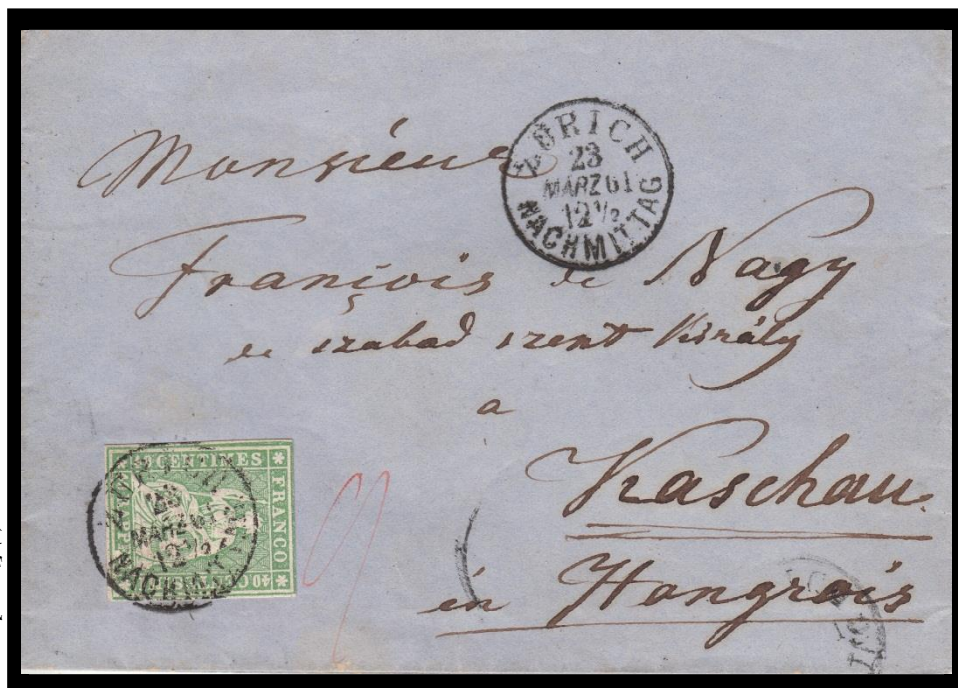 Monsieur
ZÜRICH
23
MÄRZ 61
12 1/2
NACHMITTAG
François de Nagy
de szabad szent Király
a
Kaschau
in Hongrois
CENTIMES
FRANCO
40
MÄRZ
NACHMITT